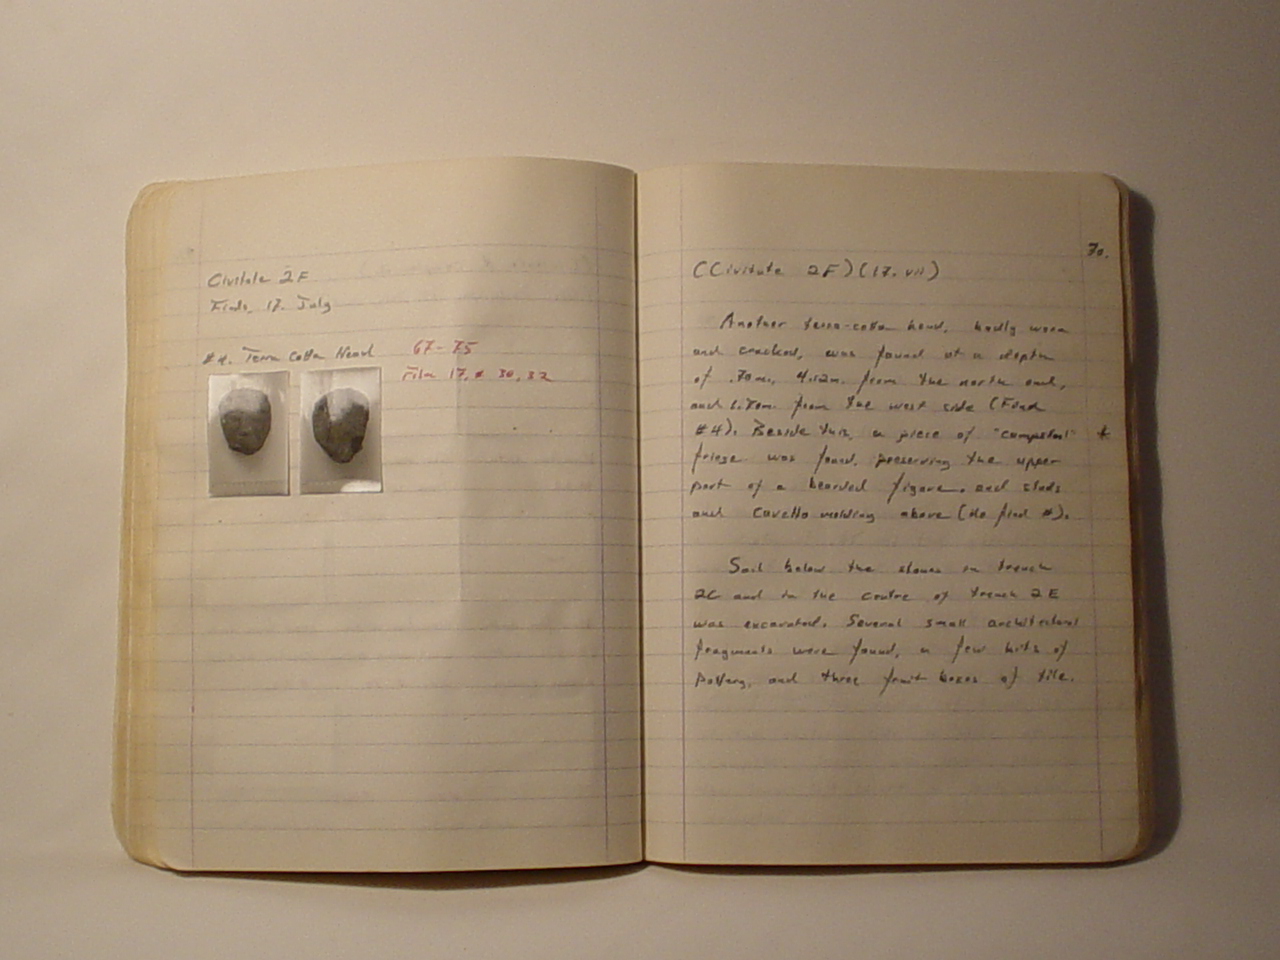 Civitate 2F
Finds, 17. July
#4. Terra Cotta Head
67-75
Film 17, # 30, 32
70.
(Civitate 2F) (17. vii)
Another terra-cotta head, badly worn
and cracked, was found at a depth
of .70m, 4.12m. from the north end,
and from the west side (Find
#4). Beside this, a piece of "campstool" *
frieze was found, preserving the upper
part of a bearded figure, and slabs
and Cavetto molding above (No find #).
Soil below the stones in trench
2C and in the centre of trench 2E
was excavated. Several small architectural
fragments were found, a few bits of
Pottery, and three fruit boxes of tile.